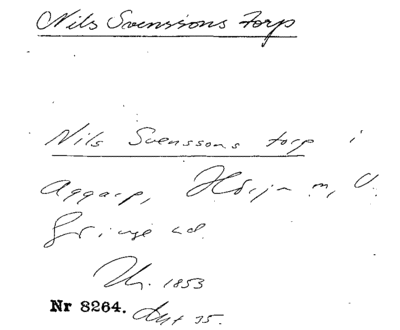 Nils Svenssons torp
Nils Svenssons torp i
Aggarp, Hörja sn, V.
Göinge hd.
Ih. 1853
Nr 8264. Aut 35.